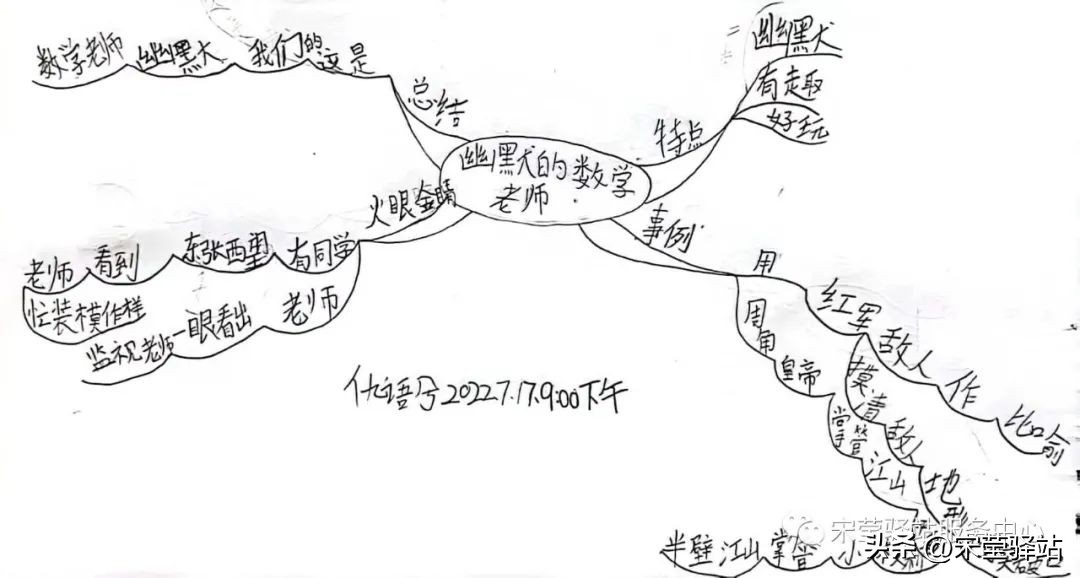 幽默的数学
老师
特点
幽默
有趣
好玩
事例
用
红军
敌人
作
比喻
摸清
敌人
地形
周角
皇帝
掌管
江山
半壁江山
掌管
小
火眼金睛
有同学
东张西望
看到
老师
忙装模作样
老师
一眼看出
监视老师
总结
这是
我们的
幽默
数学老师
仇语兮2022.7.17.9:00下午
宋莹驿站服务中心
头条@宋莹驿站